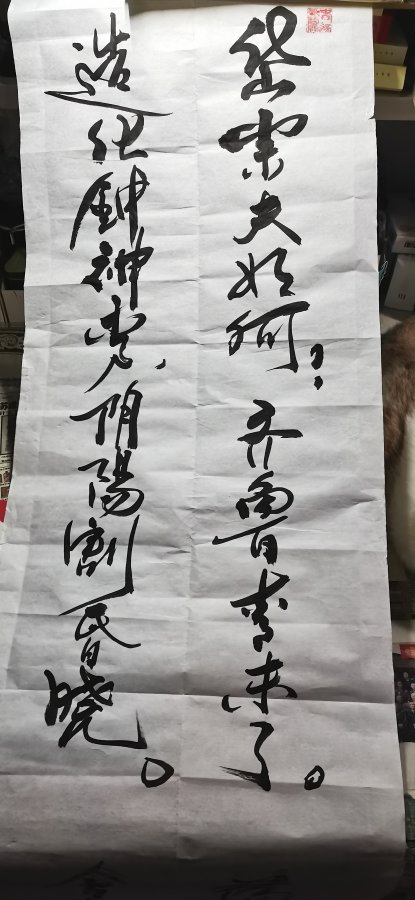 岱宗夫如何？齐鲁青未了。
造化鈡神秀，阴陽割昏晓。